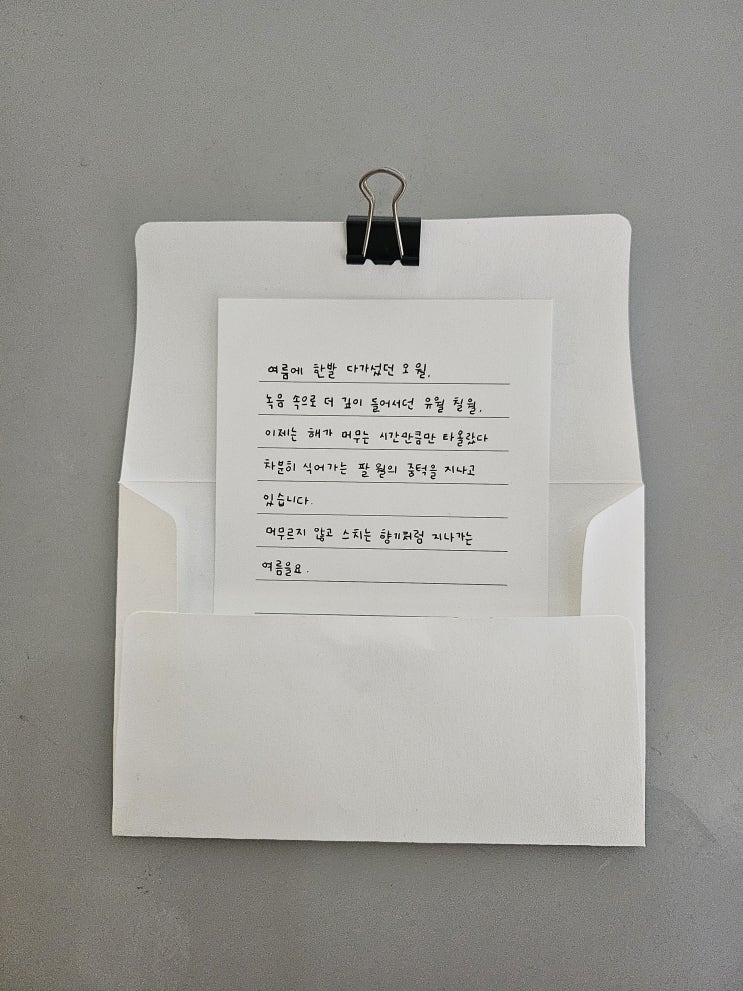 여름에 한발 다가섰던 오월,
녹음 속으로 더 깊이 들어서던 유월 칠월,
이제는 해가 머무는 시간만큼만 타올랐다
차분히 식어가는 팔월의 중턱을 지나고
있습니다.
머무르지 않고 스치는 향기처럼 지나가는
여름을요.